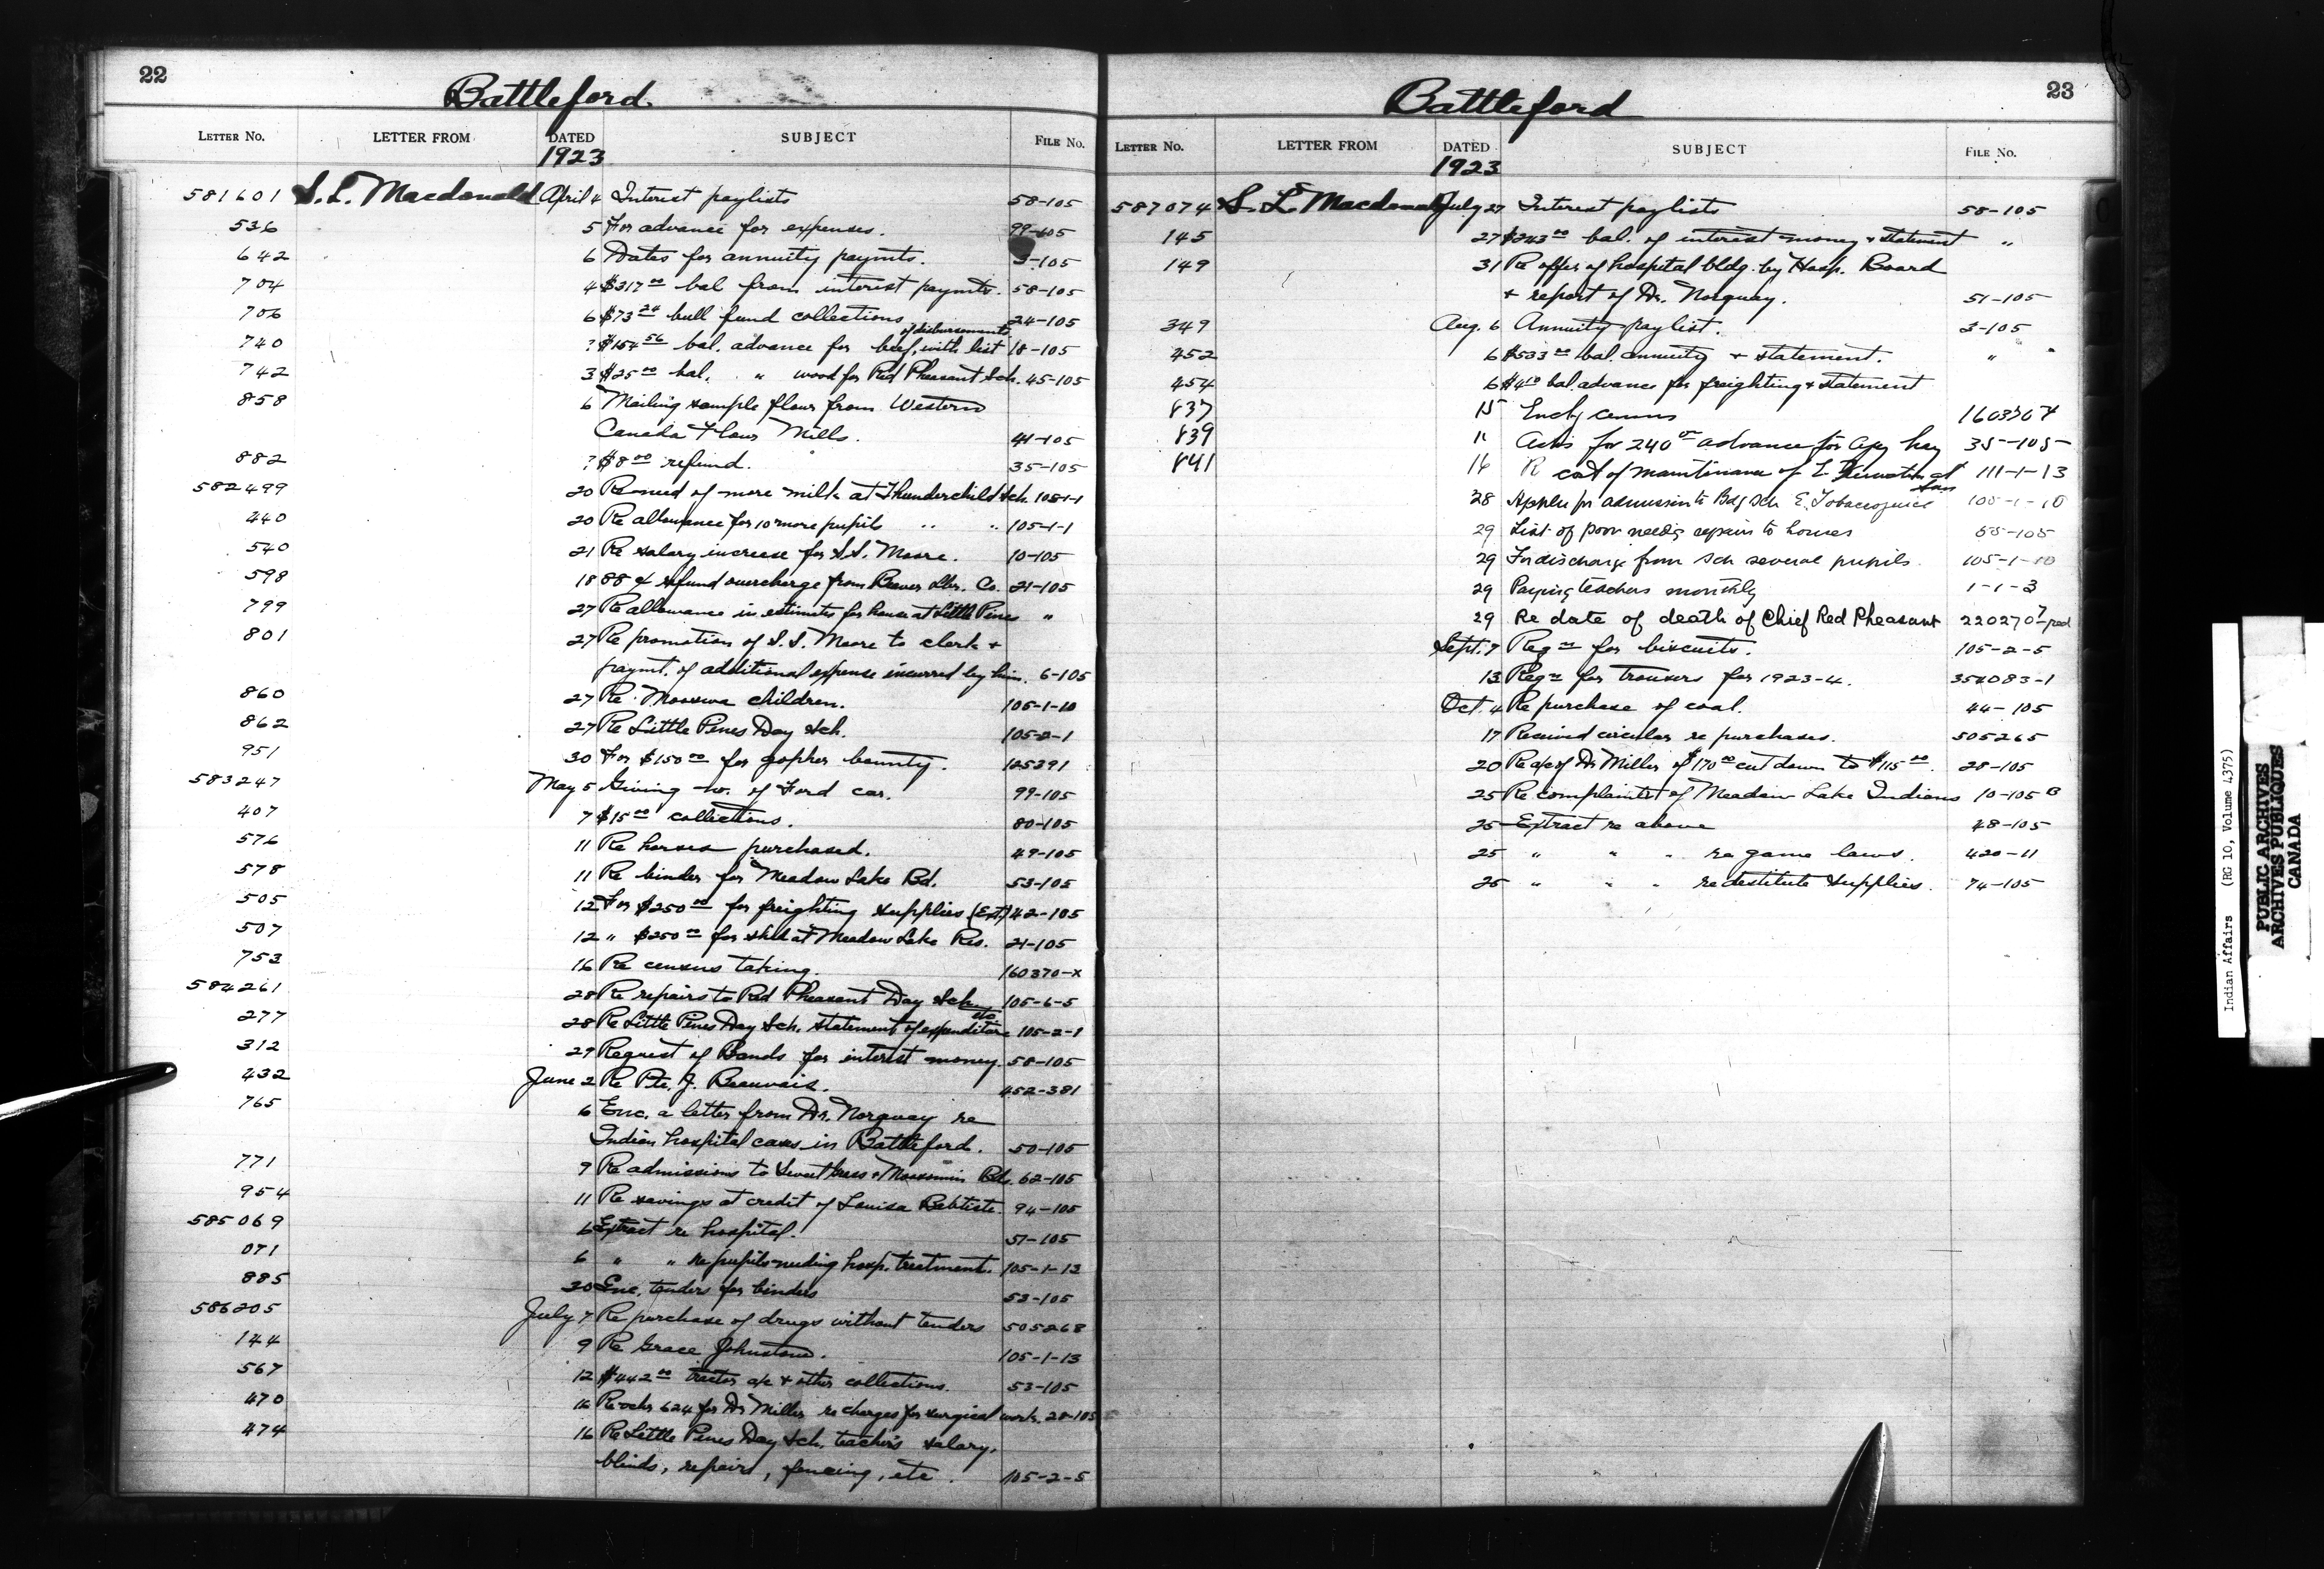 22
Battleford.
LETTER No. LETTER FROM DATED SUBJECT FILE No.
1923
581601 S. L. Macdonald April 4 Interest paylists 58-105
536 5 For advance for expenses. 99-105
642 6 Dates for annuity paymts. 3-105
704 4 $317.00 bal from interest paymts. 58-105
706 6 $73.24 bull fund collections 24-105
740 ? $154.56 bal. advance for beef, with list of disbursements 18-105
742 3 $25.00 bal. " wood for Red Pheasant Sch. 45-105
858 6 Mailing sample flour from Western
Canada Flour Mills. 41-105
882 ? $8.00 refund. 35-105
582499 20 Re need of more milk at Thunderchild Sch. 105-1-1
440 20 Re allowance for 10 more pupils " " 105-1-1
540 21 Re salary increase for S.S. Moore. 10-105
598 18 88¢ refund overcharge from Beaver Lbr. Co. 21-105
799 27 Re allowance in estimates for house at Little Pines "
801 27 Re promotion of S.S. Moore to clerk +
paymt. of additional expense incurred by him. 6-105
860 27 Re Mooswa children. 105-1-10
862 27 Re Little Pines Day Sch. 105-2-1
951 30 For $150.00 for gopher bounty. 125391
583247 May 5 Giving no. of Ford car. 99-105
407 7 $15.00 collections. 80-105
576 11 Re horses purchased. 49-105
578 11 Re binder for Meadow Lake Bd. 53-105
505 12 For $250.00 for freighting supplies (Ext.) 42-105
507 12 " $250.00 for shed at Meadow Lake Res. 21-105
753 16 Re census taking. 160370-X
584261 28 Re repairs to Red Pheasant Day Sch. 105-6-5
277 28 Re Little Pines Day Sch. statement of expenditure etc. 105-2-1
312 29 Request of Bands for interest money. 58-105
432 June 2 Re Pte. J. Beauvais. 452-381
765 6 Enc. a letter from Dr. Norquay re
Indian hospital cases in Battleford. 50-105
771 9 Re admissions to Sweet Grass + Moosomin Bds. 62-105
954 11 Re savings at credit of Louisa Babtiste. 94-105
585069 6 Extract re hospital. 51-105
071 6 " " re pupils needing hosp. treatment. 105-1-13
885 20 Enc. tenders for binders 53-105
586205 July 7 Re purchase of drugs without tenders 505268
144 9 Re Grace Johnstone. 105-1-13
567 12 $442.00 tractor a/c + other collections. 53-105
470 16 Re ochr 624 for Dr Miller re charges for surgical work. 28-105
474 16 Re Little Pines Day Sch. teacher's salary,
blinds, repairs, fencing, etc. 105-2-5
23
Battleford
LETTER No. LETTER FROM DATED SUBJECT FILE No.
1923
587074 S. L. Macdonald July 27 Interest paylists 58-105
145 27 $243.00 bal. of interest money + statement "
149 31 Re offer of hospital bldg. by Hosp. Board
+ report of Dr. Norquay. 51-105
349 Aug. 6 Annuity paylist. 3-105
452 6 $533.00 bal. annuity + statement. "
454 6 $4.10 bal. advance for freighting + statement
837 15 Encl'g census 160370 X
839 11 Asks for 240.00 advance for Agcy hay 35-105
841 16 R cost of maintenance of E. at San 111-1-13
28 Appl'n for admission to Bdg Sch E. Tobaccojuice 105-1-10
29 List of poor needing repairs to houses 55-105
29 For discharge from Sch several pupils 105-1-10
29 Paying teachers monthly 1-1-3
29 Re date of death of Chief Red Pheasant 220270
Sept. 7 Reqn for biscuits. 105-2-5
13 Reqn for trousers for 1923-4. 354083-1
Oct. 4 Re purchase of coal. 44-105
17 Received circular re purchases. 505265
20 Re a/c of Dr Miller of $170.00 cut down to $115.00. 28-105
25 Re complaints of Meadow Lake Indians 10-105 B
25 Extract re above 48-105
25 " " " re game laws. 420-11
25 " " " re destitute supplies. 74-105
Indian Affairs (RG 10, Volume 4375)
PUBLIC ARCHIVES
ARCHIVES PUBLIQUES
CANADA